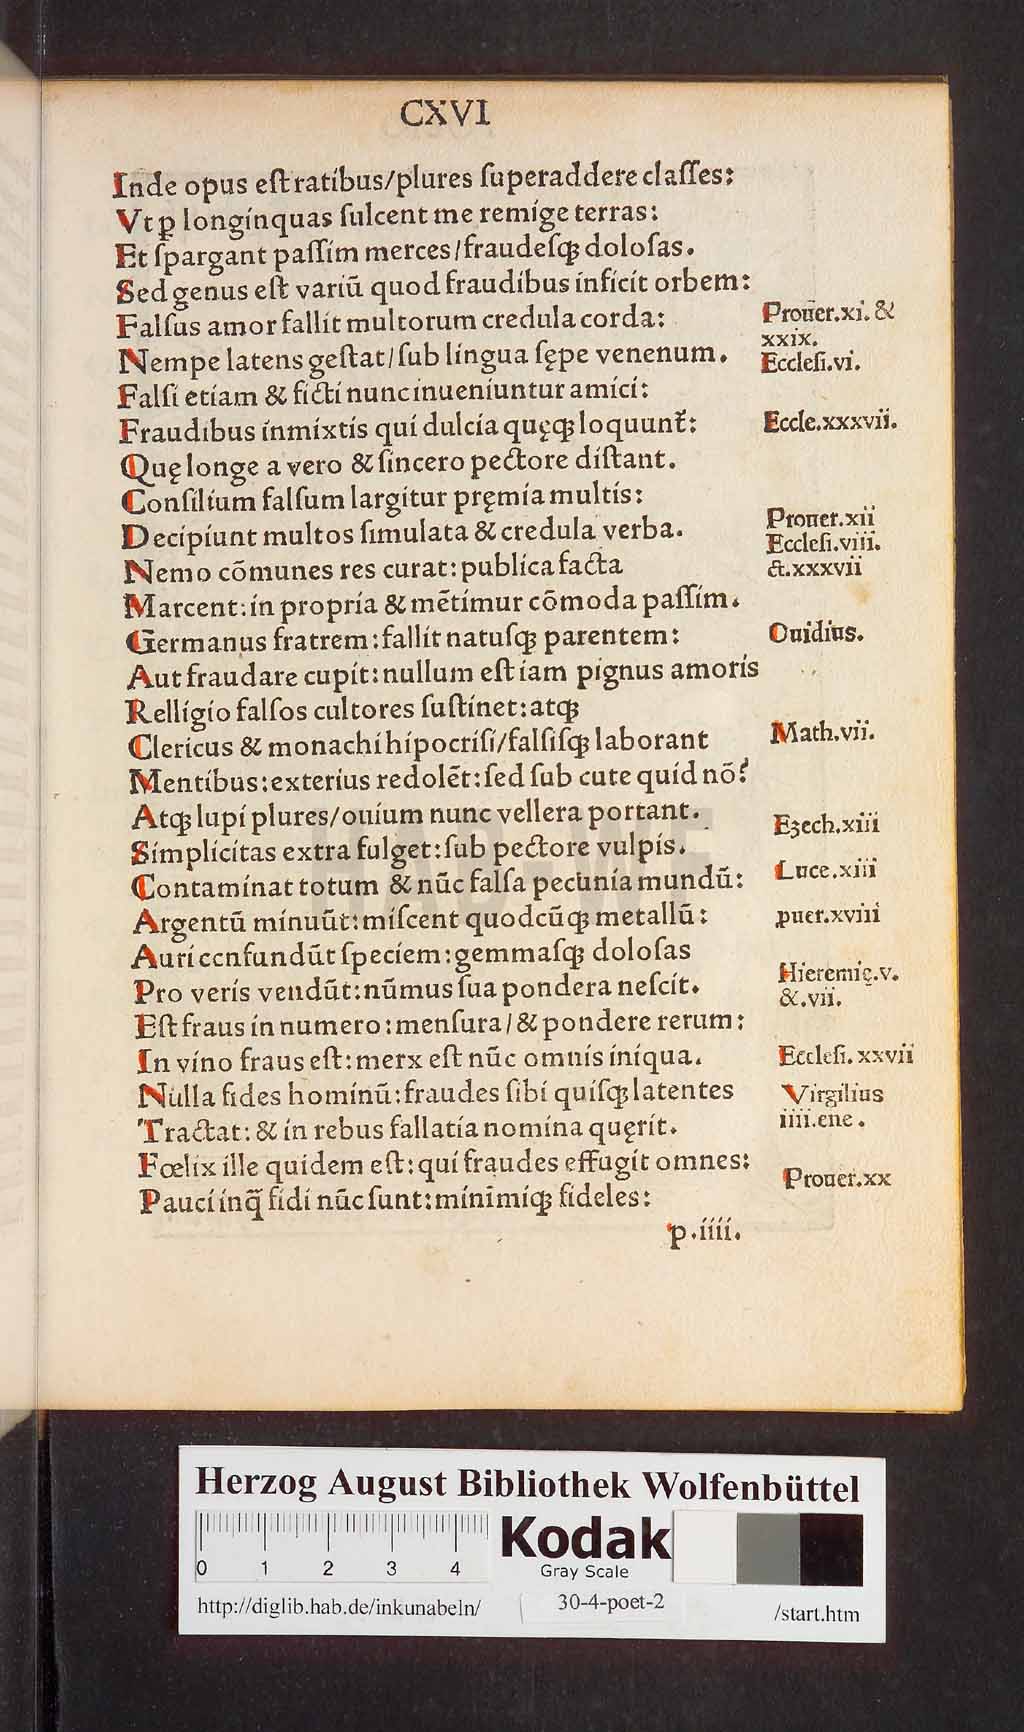 CXVI
Inde opus eſt ratibus/plures ſuperaddere claſſes:
Vt ꝑ longinquas ſulcent me remige terras:
Et ſpargant paſſim merces/fraudeſqꝫ doloſas.
Sed genus eſt variū quod fraudibus inficit orbem:
Falſus amor fallit multorum credula corda:
Nempe latens geſtat/ſub lingua ſępe venenum.
Falſi etiam & ficti nunc inueniuntur amici:
Fraudibus inmixtis qui dulcia quęqꝫ loquunt᷑:
Quę longe a vero & ſincero pectore diſtant.
Conſilium falſum largitur pręmia multis:
Decipiunt multos ſimulata & credula verba.
Nemo cōmunes res curat: publica facta
Marcent: in propria & mētimur cōmoda paſſim.
Germanus fratrem: fallit natuſqꝫ parentem:
Aut fraudare cupit: nullum eſt iam pignus amoris
Relligio falſos cultores ſuſtinet: atqꝫ
Clericus & monachi hipocriſi/falſiſqꝫ laborant
Mentibus: exterius redolēt: ſed ſub cute quid nō?
Atqꝫ lupi plures/ouium nunc vellera portant.
Simplicitas extra fulget: ſub pectore vulpis.
Contaminat totum & nūc falſa pecunia mundū:
Argentū minuūt: miſcent quodcūqꝫ metallū:
Auri ccnfundūt ſpeciem: gemmaſqꝫ doloſas
Pro veris vendūt: nūmus ſua pondera neſcit.
Eſt fraus in numero: menſura/& pondere rerum:
In vino fraus eſt: merx eſt nūc omnis iniqua.
Nulla fides hominū: fraudes ſibi quiſqꝫ latentes
Tractat: & in rebus fallatia nomina quęrit.
Fœlix ille quidem eſt: qui fraudes effugit omnes:
Pauci inq̄ fidi nūc ſunt: minimiqꝫ fideles:
p.iiii.
Prouer.xi. &
xxix.
Eccleſi.vi.
Eccle.xxxvii.
Prouer.xii
Eccleſi.viii.
&.xxxvii
Ouidius.
Math.vii.
Ezech.xiii
Luce.xiii
ꝓuer.xviii
Hieremię.v.
&.vii.
Eccleſi.xxvii
Virgilius
iiii.ene.
Prouer.xx
HAB WF
Herzog August Bibliothek Wolfenbüttel
0 1 2 3 4
Kodak
Gray Scale
http://diglib.hab.de/inkunabeln/
30-4-poet-2
/start.htm